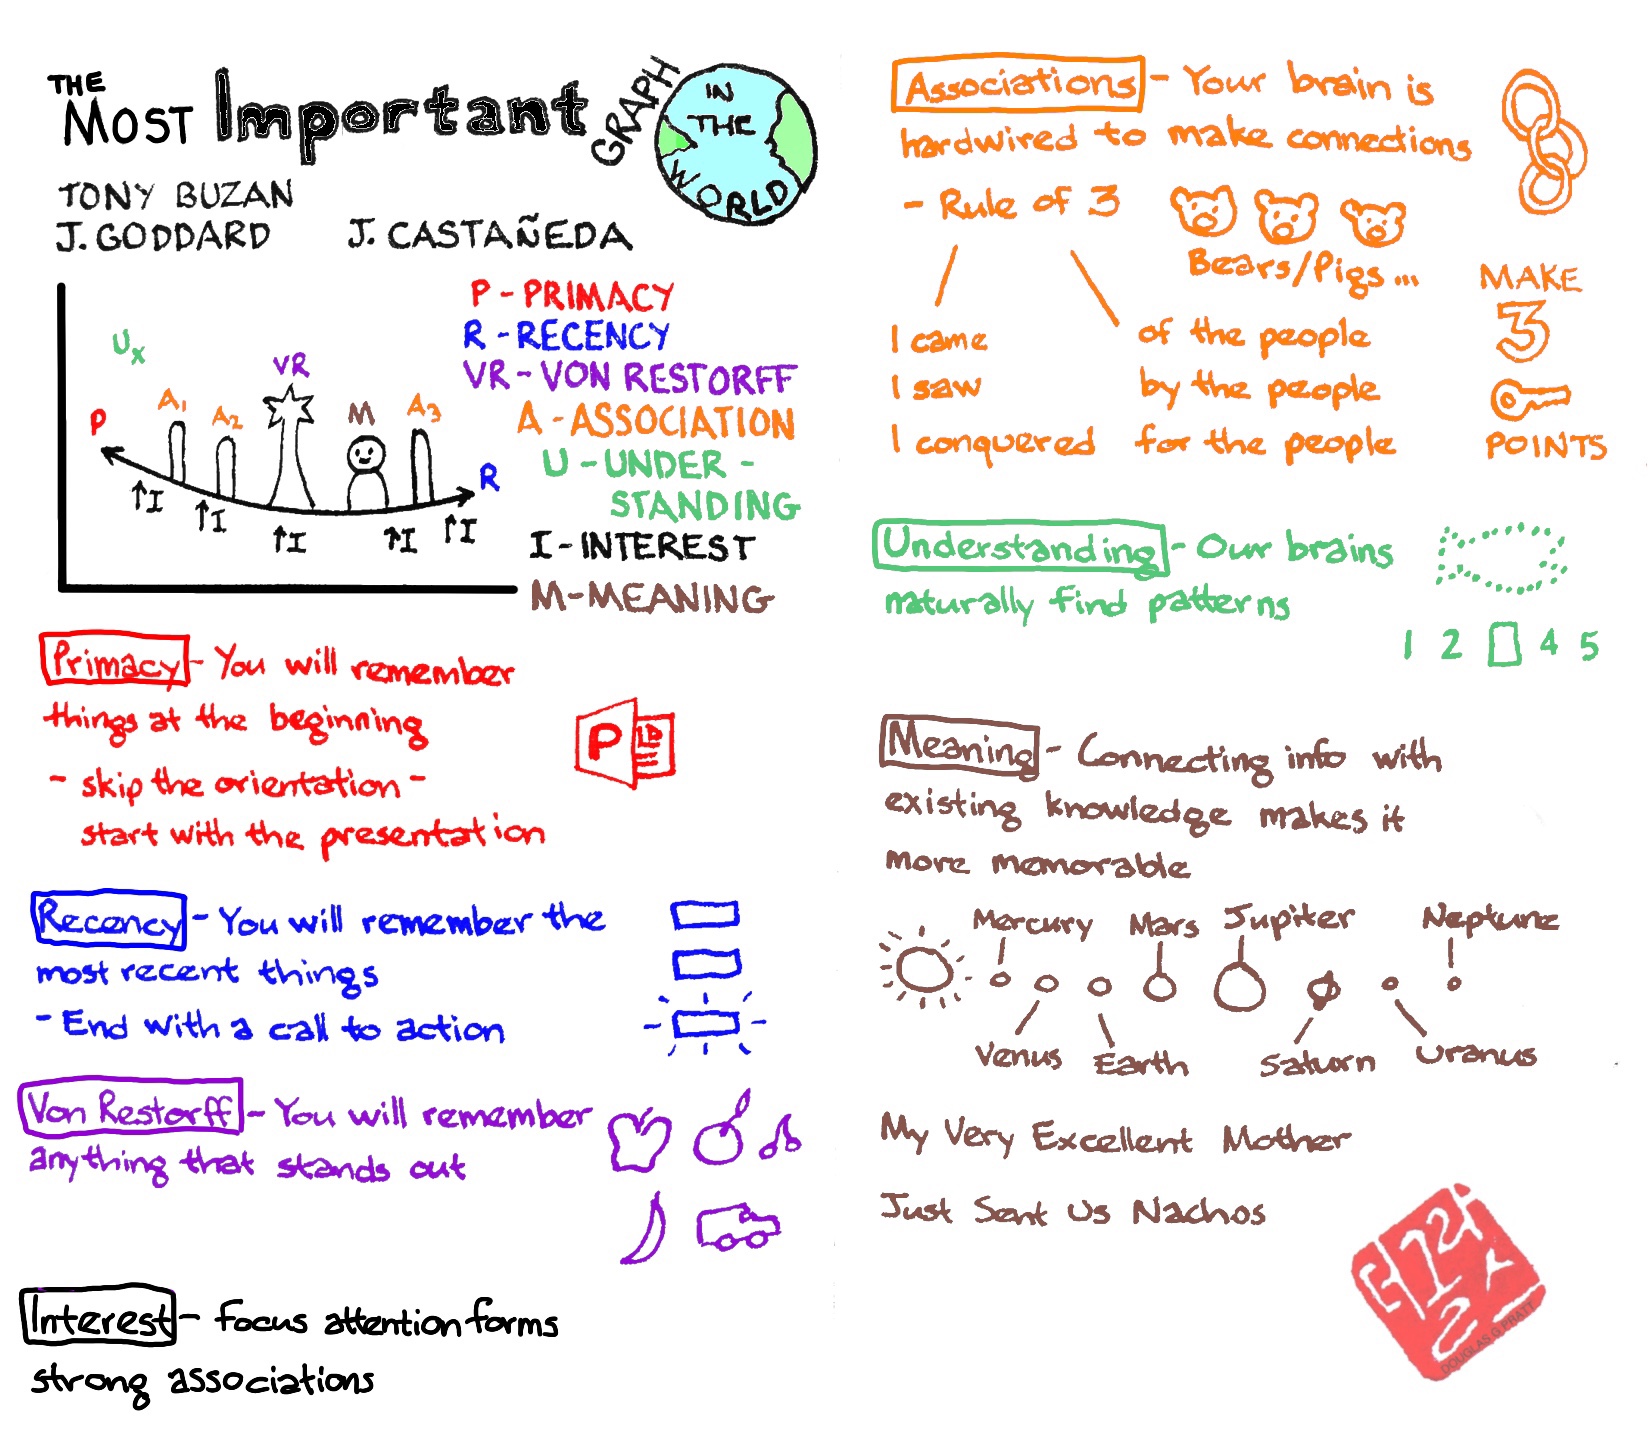 THE
MOST Important GRAPH IN THE WORLD
TONY BUZAN
J. GODDARD J. CASTAÑEDA
P - PRIMACY
R - RECENCY
VR - VON RESTORFF
A - ASSOCIATION
U - UNDER -
STANDING
I - INTEREST
M - MEANING
Ux
P
A1
A2
VR
M
A3
R
↑I
↑I
↑I
↑I
↑I
Primacy - You will remember
things at the beginning
- skip the orientation -
start with the presentation
P
Recency - You will remember the
most recent things
- End with a call to action
Von Restorff - You will remember
anything that stands out
Interest - Focus attention forms
strong associations
Associations - Your brain is
hardwired to make connections
- Rule of 3
Bears/Pigs...
I came
I saw
I conquered
of the people
by the people
for the people
MAKE
3
POINTS
Understanding - Our brains
naturally find patterns
1 2 4 5
Meaning - Connecting info with
existing knowledge makes it
more memorable
Mercury Mars Jupiter Neptune
Venus Earth Saturn Uranus
My Very Excellent Mother
Just Sent Us Nachos
DOUGLAS G PRATT